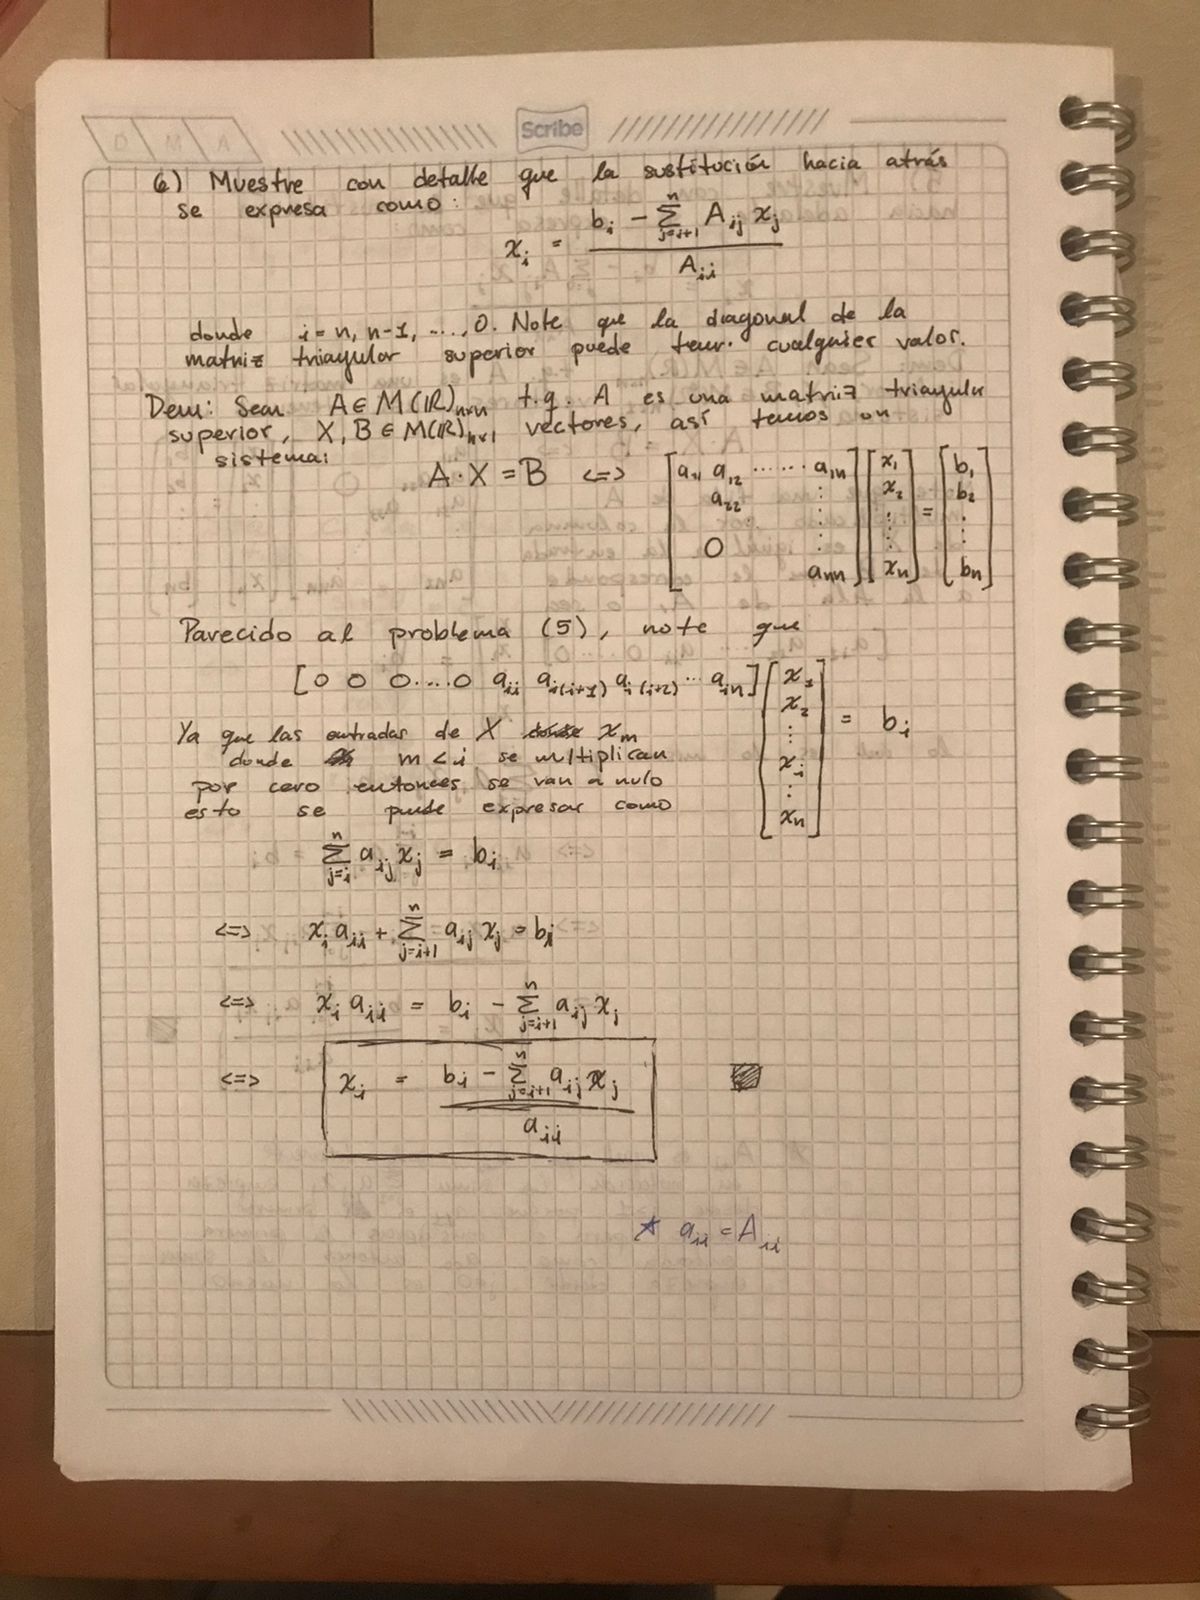 Scribe
A M D
6) Muestre con detalle que la sustitución hacia atrás
se expresa como:
x_i = (b_i - Σ_{j=i+1}^{n} A_{ij} x_j) / A_{ii}
donde i = n, n-1, ..., 0. Note que la diagonal de la
matriz triangular superior puede tener cualquier valor.
Dem: Sean A ∈ M(ℝ)_{n×n} t.q. A es una matriz triangular
superior, X, B ∈ M(ℝ)_{n×1} vectores, así temos un
sistema:
A · X = B <=> [a_{11} a_{12} ...... a_{1n}; a_{22} ⋮; 0 ⋮; a_{nn}] [x_1; x_2; ⋮; x_n] = [b_1; b_2; ⋮; b_n]
Parecido al problema (5), note que
[0 0 0....0 a_{ii} a_{i(i+1)} a_{i(i+2)} ... a_{in}] [x_1; x_2; ⋮; x_i; ⋮; x_n] = b_i
Ya que las entradas de X x_m
donde m < i se multiplican
por cero entonces se van a nulo
esto se puede expresar como
Σ_{j=i}^{n} a_{ij} x_j = b_i
<=> x_i a_{ii} + Σ_{j=i+1}^{n} a_{ij} x_j = b_i
<=> x_i a_{ii} = b_i - Σ_{j=i+1}^{n} a_{ij} x_j
<=> x_i = (b_i - Σ_{j=i+1}^{n} a_{ij} x_j) / a_{ii}
★ a_{ii} = A_{ii}